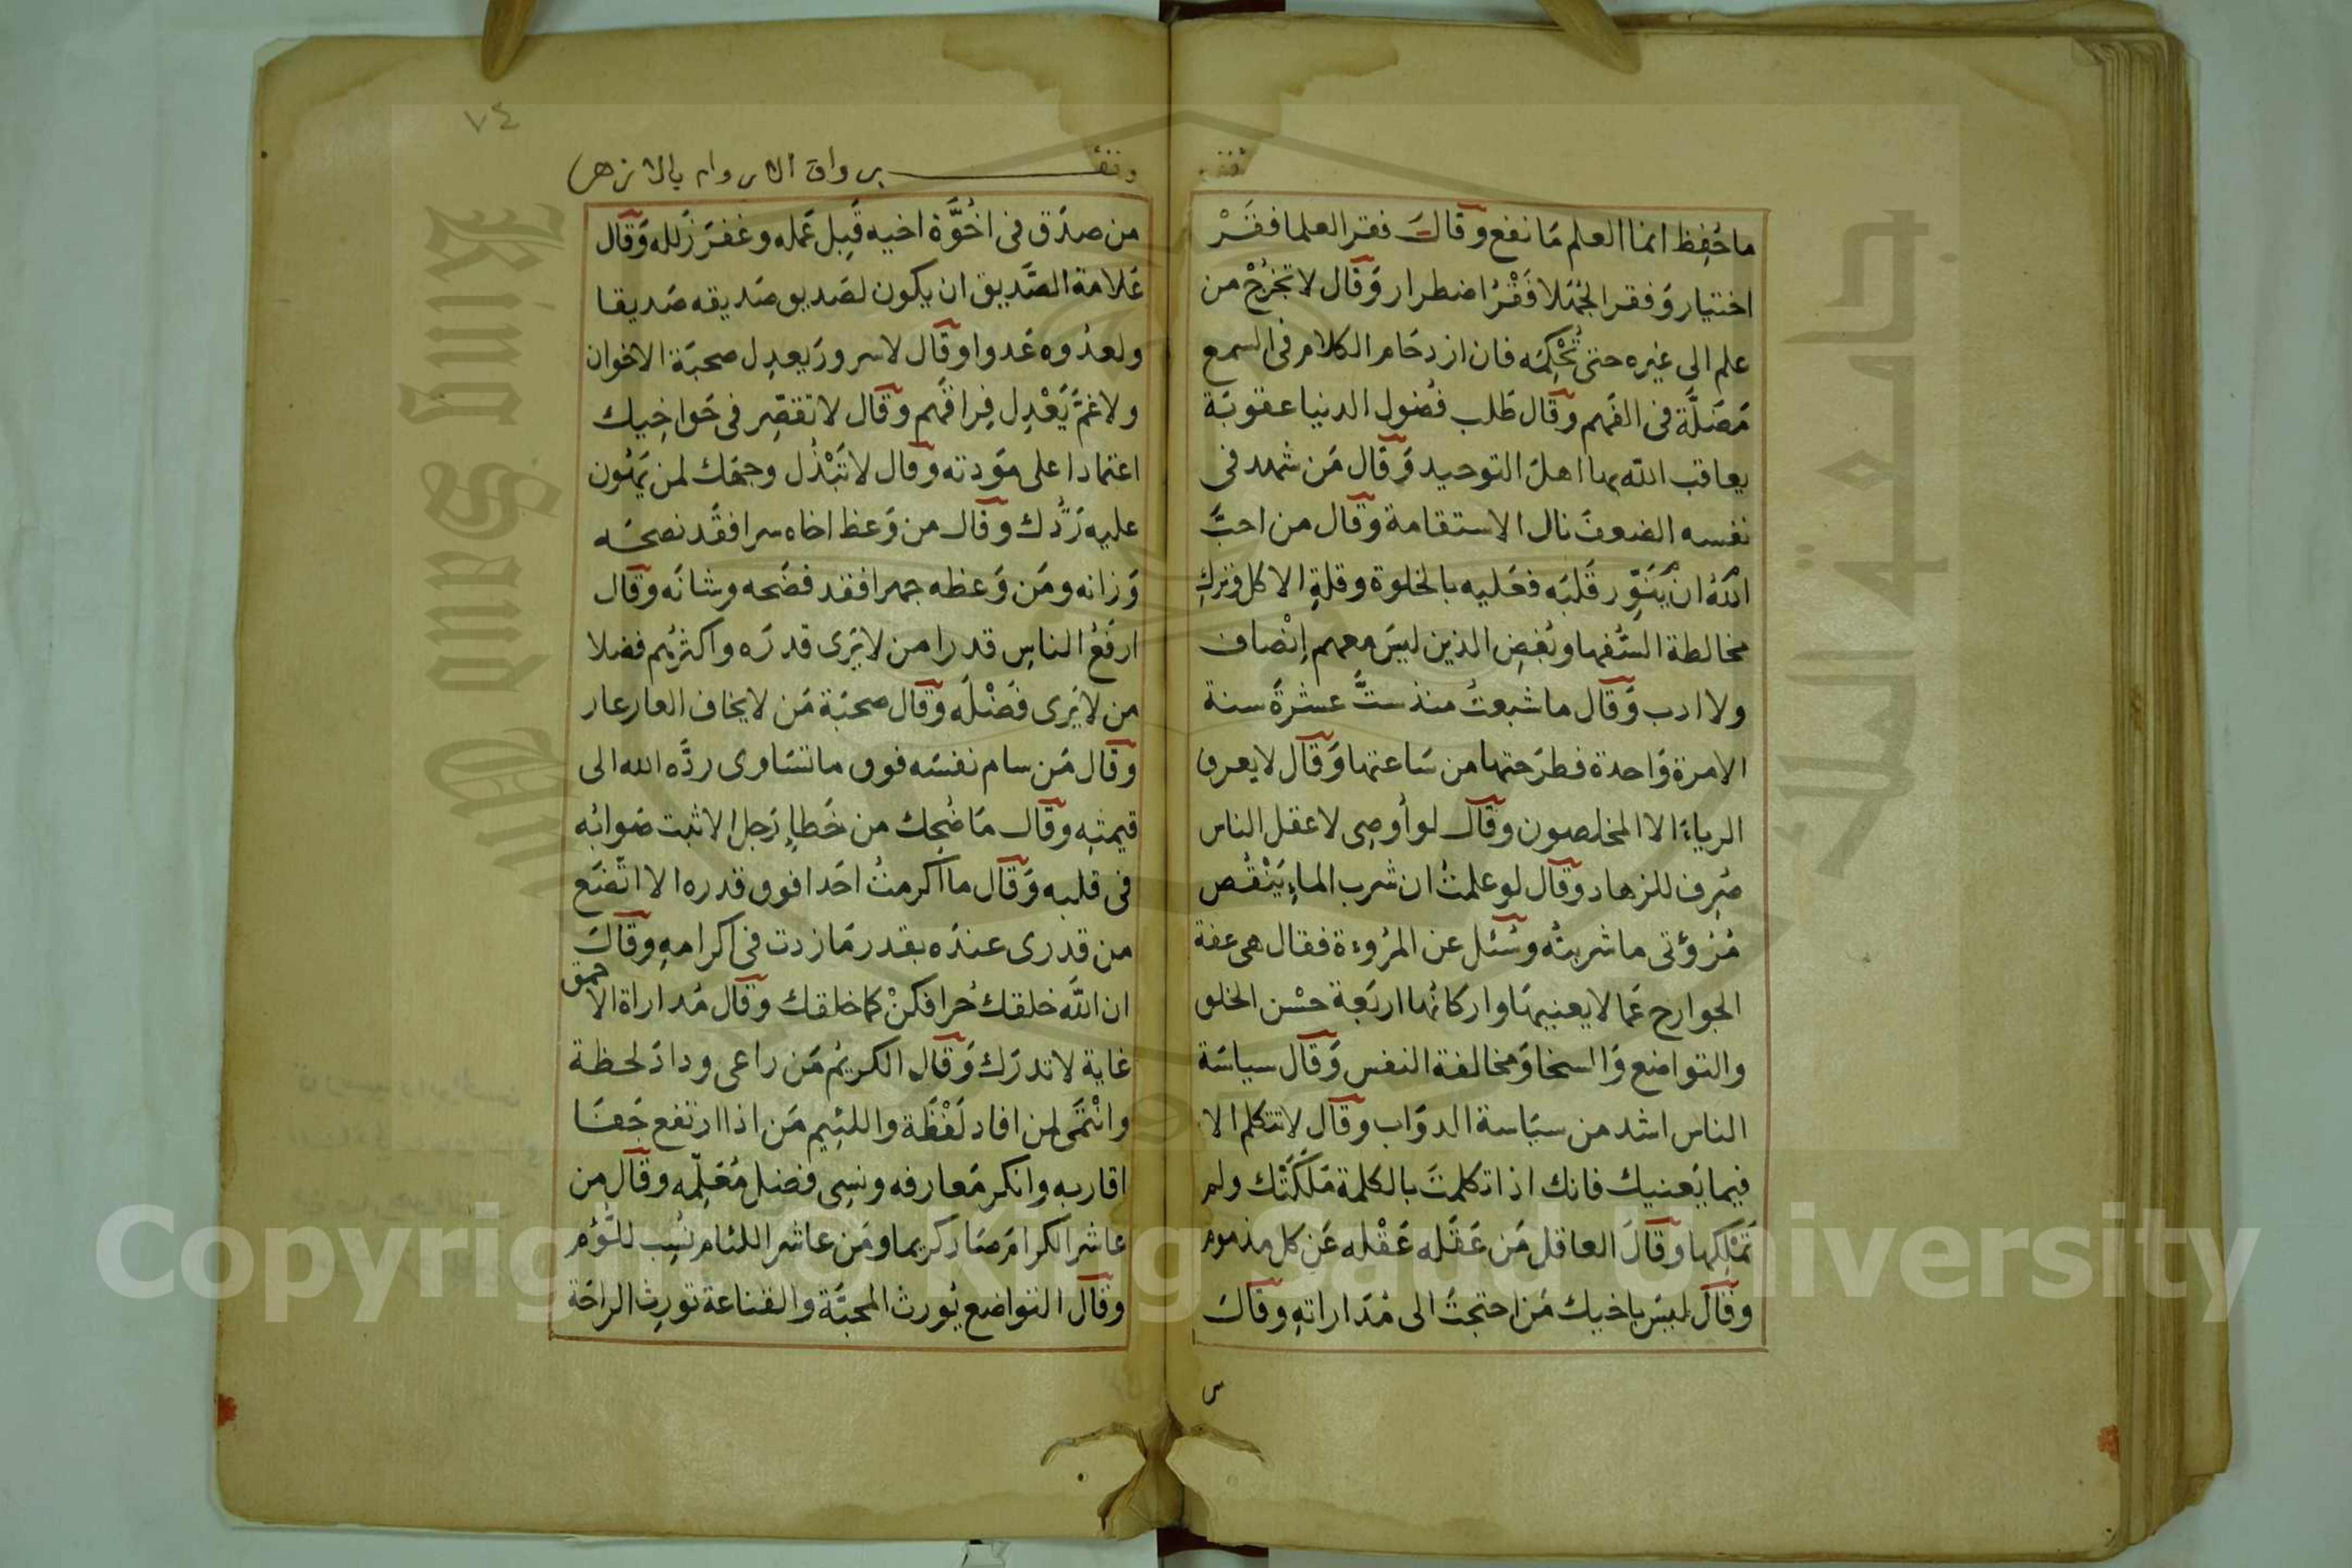 ما حُفِظ انما العلم مَا نفع وقَالَ فقر العلما فقَرْ
اختيار وَفقر الجُهَلا فَقْرُ اضطرار وَقَال لا تَخرُجْ من
علم الى غيره حتى تُحْكِمَه فان ازدحَام الكلام فى السمع
مَضَلَّة فى الفَهم وقَال طَلب فُضول الدنيا عقوبَة
يعاقب الله بها اهل التوحيد وَقَال مَن شهد فى
نفسه الضعفَ نال الاستقامة وقَال من احبَّ
اللهُ ان يُنَوِّر قَلبَه فعَليه بالخلوة وقلةِ الاكل وتركِ
مخالطة السُّفها وبُغضِ الذين ليسَ معهم اِنْصاف
ولا ادب وَقَال ما شبعتُ منذ ستَّ عشْرَةَ سنة
الا مرة وَاحدة فطرَحتها من سَاعتها وَقَال لا يعرف
الرياءَ الا المخلصون وقَال لو أُوصِى لا عقل الناس
صُرِف للزهاد وقَال لو علمتُ ان شرب الماءِ يَنْقُص
مُرُوءَتى ما شربتُه وسُئل عن المرُوءة فقال هى عفة
الجوارح عَما لا يعنيهَا واركانُها اربَعة حسْن الخلق
والتواضع وَالسخا وَمخالفة النفس وَقَال سياسَة
الناس اشد من سيَاسة الدوَاب وقَال لا تتكلم الا
فيما يَعنيك فانك اذا تكلمتَ بالكلمة مَلَكَتْك ولم
تَمْلِكها وقَالَ العاقل مَن عَقَله عَقْله عَن كل مذموم
وقَال ليسَ باخيك مَن احتجتَ الى مُدَاراتهِ وقَالَ
س
٧٤
وقف برواق الاروام بالازهر
من صدَق فى اخُوَّة اخيه قَبِل عَمله وغفرَ زَلله وَقَال
عَلامة الصَّديق ان يكون لصَديق صَديقه صَديقا
ولعدُوه عَدوا وقَال لا سرور يَعدِل صحبَة الاخوان
ولا غمَّ يَعْدِل فِراقَهم وقَال لا تقصِّر فى حَق اخِيك
اعتمادا على مَودته وقَال لا تَبْذُل وجهك لمن يَهُون
عليه رَدُّك وقَال من وَعظ اخاه سرا فقَد نصحَه
وَزانه ومَن وَعظه جهرا فقد فضَحه وشانَه وقَال
ارفَعُ الناسِ قدرا من لا يَرى قدرَه واكثرُهم فضلا
من لا يَرى فَضْلَه وَقَال صحبَة مَن لا يخاف العار عار
وقَال مَن سام نفسَه فوق ما تسَاوى ردَّه الله الى
قيمتِه وقَال مَا ضُحِك من خَطاءِ رَجل الا ثبت صَوابُه
فى قلبه وَقَال ما اكرمتُ احَدا فوق قدره الا اتَضَع
من قدرى عندَه بقدر مَا زدت فى اكرامهِ وقَالَ
ان اللَّه خلقك حُرا فكنْ كما خلقك وقَال مُداراة الاحمق
غاية لا تدرَك وَقَال الكريمُ مَن راعى ودادَ لحظة
وانْتمَى لمن افاد لَفْظَة واللئِيم مَن اذا ارتفع جَفَا
اقاربه وانكر مَعارفه ونسِى فضل مُعَلِّمه وقَال من
عاشر الكرامَ صَار كريما ومَن عاشر اللئام نُسِب للَّؤم
وقَال التواضع يُورث المحبَّة والقناعة تورِث الراحَة
King Saud University
Copyright © King Saud University